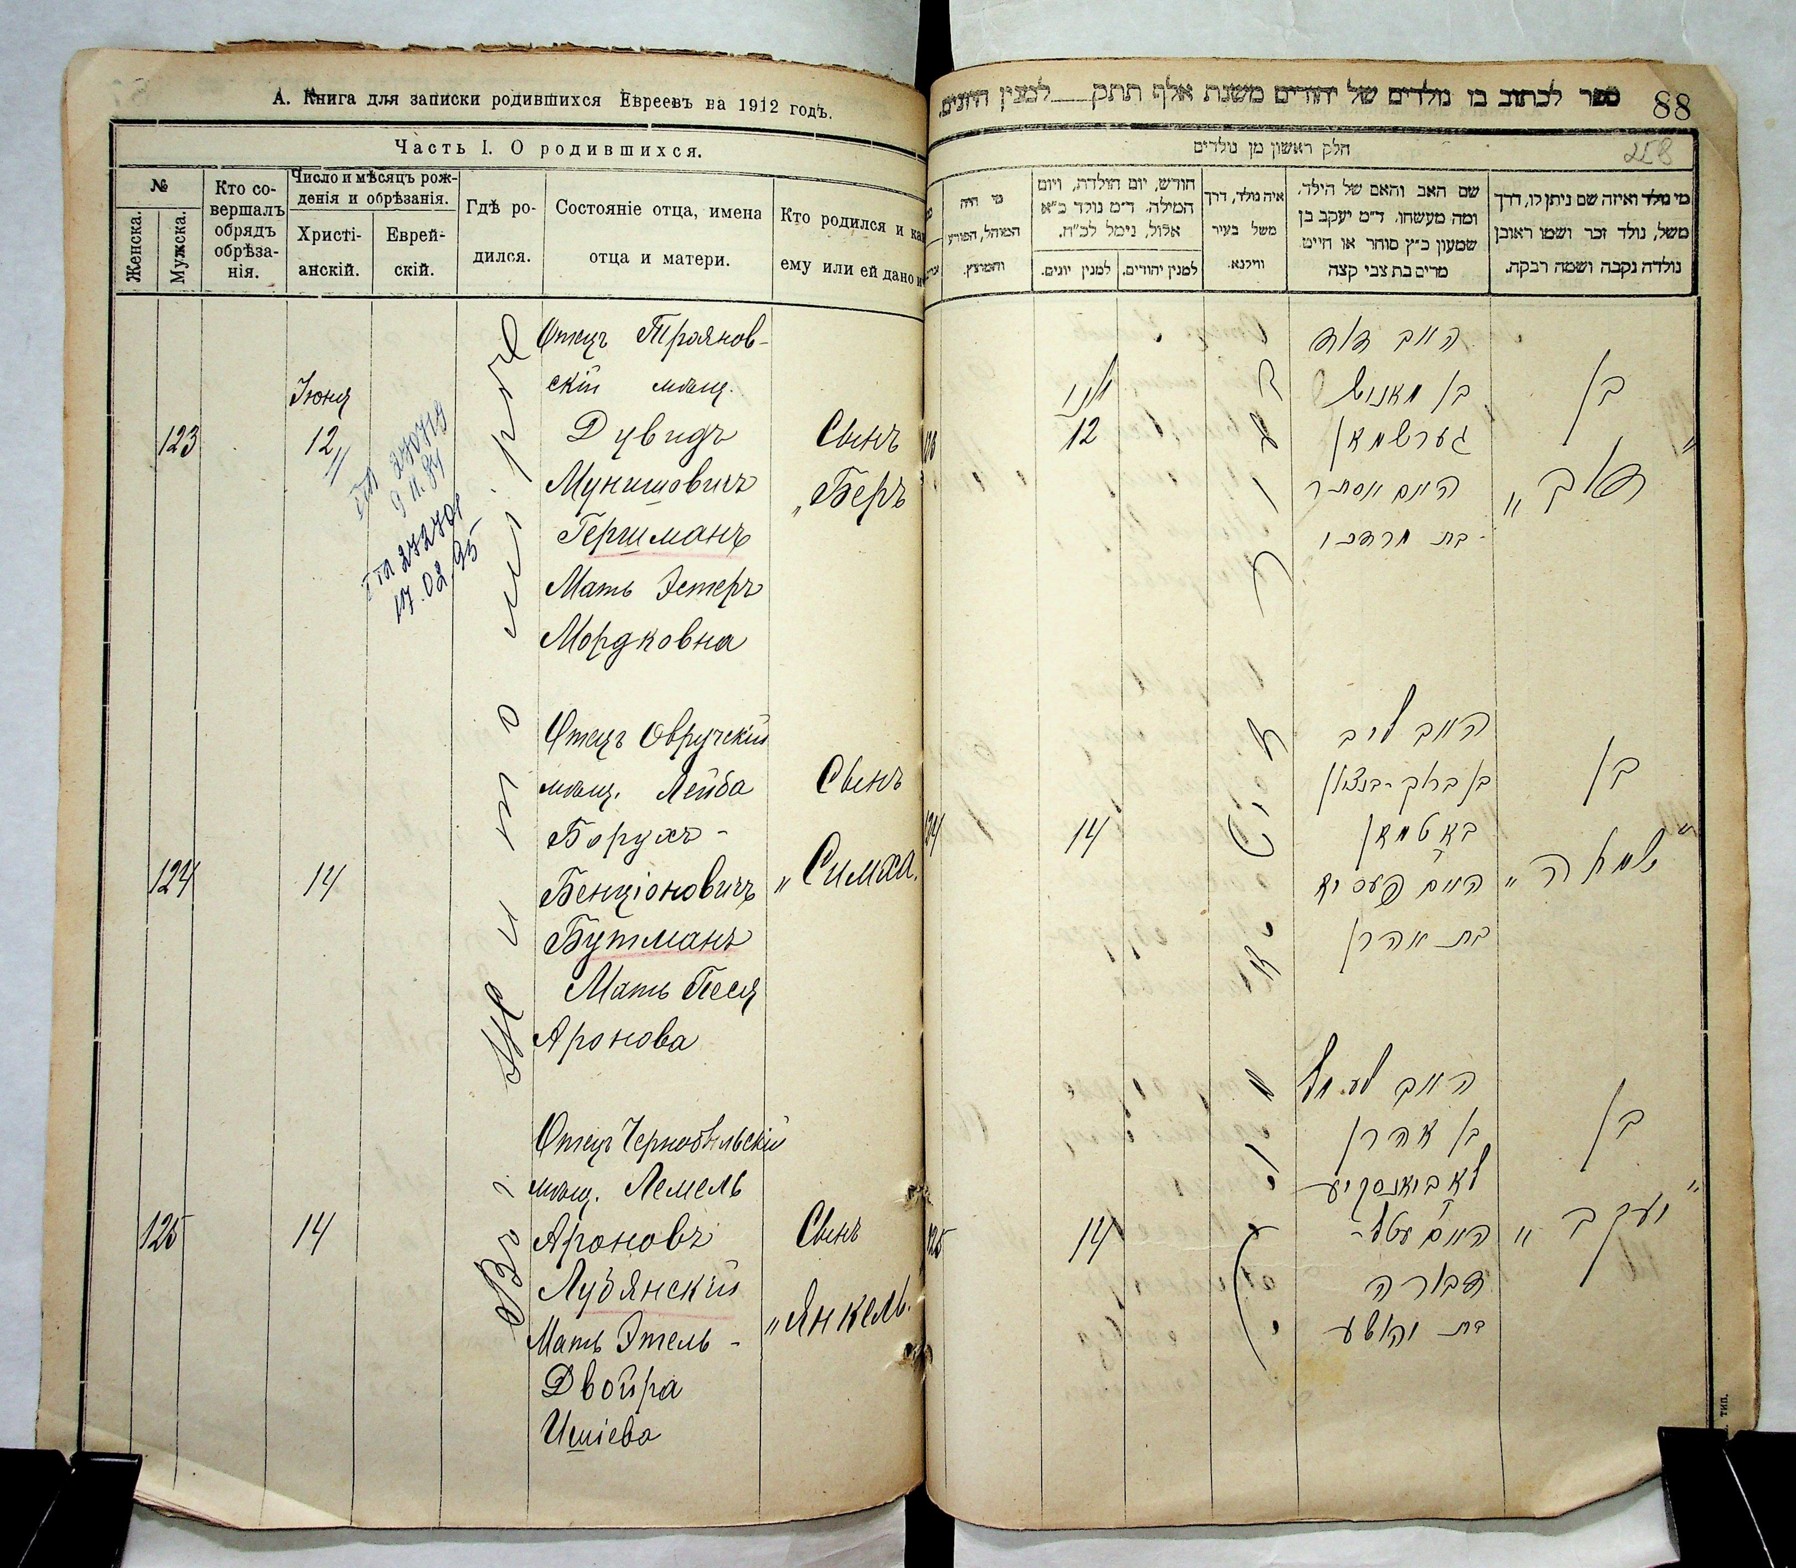 А. Книга для записки родившихся Евреевъ на 1912 годъ.
Часть I. О родившихся.
№
Женска.
Мужска.
Кто со-
вершалъ
обрядъ
обрѣза-
нія.
Число и мѣсяцъ рож-
денія и обрѣзанія.
Христі-
анскій.
Еврей-
скій.
Гдѣ ро-
дился.
Состояніе отца, имена
отца и матери.
Кто родился и как
ему или ей дано и
Въ Житомирѣ
123
Іюня
12
9 II 84
17.02.95
Отецъ Трояновскій
скій мѣщ.
Дувидъ
Мунишовичъ
Гершманъ
Мать Эстеръ
Мордковна
Сынъ
„Беръ
124
14
Отецъ Овручскій
мѣщ. Лейба
Борухъ-
Бенціоновичъ
Бутманъ
Мать Песя
Аронова
Сынъ
„Симха.
125
14
Отецъ Чернобыльскій
мѣщ. Лемель
Ароновъ
Лубянскій
Мать Этель-
Двойра
Ишіева
Сынъ
„Янкель.
ספר לכתוב בו נולדים של יהודים משנת אלף תתק___למנין היונים,
88
חלק ראשון מן נולדים
מי נולד ואיזה שם ניתן לו, דרך
משל, נולד זכר ושמו ראובן
נולדה נקבה ושמה רבקה.
שם האב והאם של הילד,
ומה מעשהו. ד״מ יעקב בן
שמעון כ״ץ סוחר או חייט
מרים בת צבי קצה
איה נולד, דרך
משל בעיר
ווילנא.
חודש, יום הולדת, ויום
המילה. ד״מ נולד כ״א
אלול, נימל לכ״ח.
למנין יהודים.
למנין יונים.
מי היה
המוהל, הפורע
והמוצץ.
בן
האב דוד
בן מאניש
גערשמאן
האם אסתר
בת מרדכי
יוני
12
בן
„שמחה“
האב ליב
בן ברוך-בנציון
באטמאן
האם פעסיא
בת אהרן
14
124
בן
„יעקב“
האב לעמל
בן אהרן
האם עטל-
דבורה
14
125
тип.